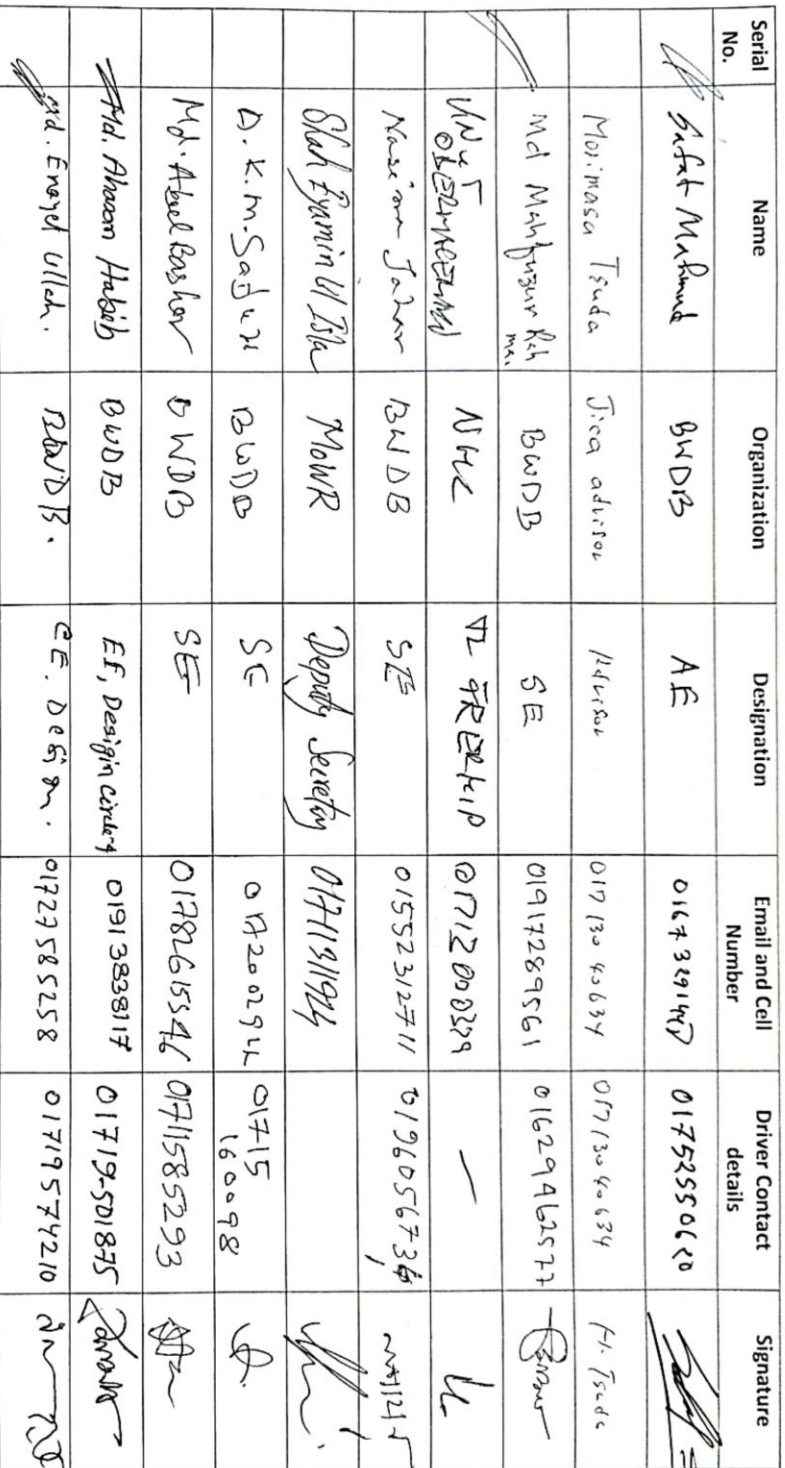 Serial No. Name Organization Designation Email and Cell Number Driver Contact details Signature
Safat Mahmud BWDB AE 01752550620
Morimasa Tsuda Jica advisor Advisor 01713040634 01713040634 M. Tsuda
Md Mahfuzur Rahman BWDB SE 01917289561 01629462577
NHK TL 01712000329 —
Nasima Jahan BWDB SE 01552312711
Shah Eyamin Ul Isla MoWR Deputy Secretary
BWDB SE 01715 160098
Md. Abul Bashar BWDB SE 01782615546 01711585293
Md. Ahasan Habib BWDB EE, Design circle-4 01913838117 01719-501875
Md. Enayet Ullah. BWDB. CE. Design. 01727585258 01719574210